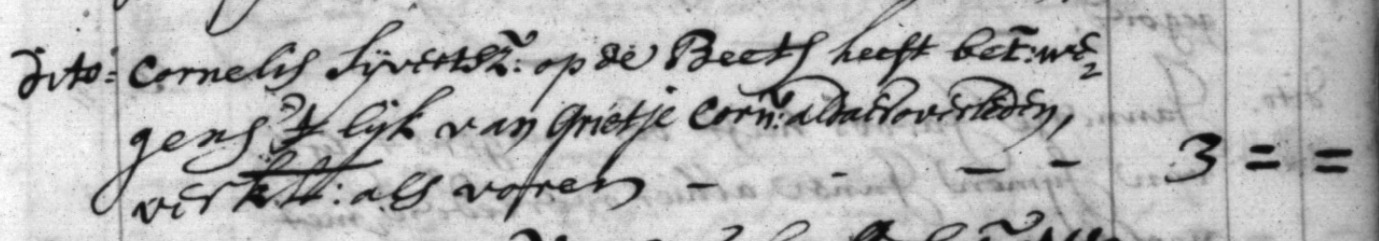 dito: Cornelis Sijvertsz: op de Beets heeft bet: we
gens 't lijk van Grietje Corn: aldaer overleden,
verkl: als voren - - - - 3 = =